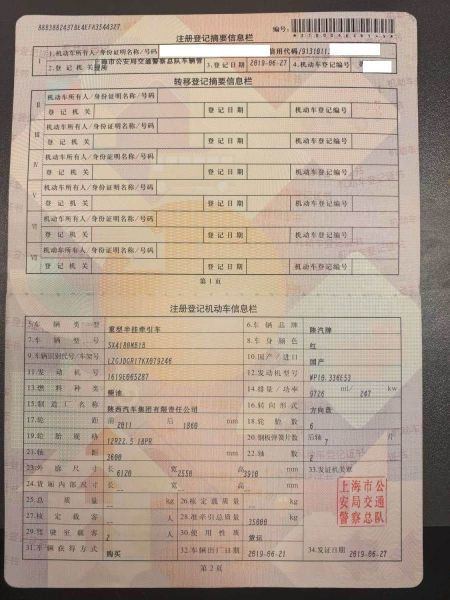 注册登记摘要信息栏
编号:
1.机动车所有人/身份证明名称/号码 信用代码/9131011
2.登记机关 上海市公安局交通警察总队车辆管理所 3.登记日期 2019-06-27 4.机动车登记编号
转移登记摘要信息栏
II 机动车所有人/身份证明名称/号码
登记机关 登记日期 机动车登记编号
III 机动车所有人/身份证明名称/号码
登记机关 登记日期 机动车登记编号
IV 机动车所有人/身份证明名称/号码
登记机关 登记日期 机动车登记编号
V 机动车所有人/身份证明名称/号码
登记机关 登记日期 机动车登记编号
VI 机动车所有人/身份证明名称/号码
登记机关 登记日期 机动车登记编号
VII 机动车所有人/身份证明名称/号码
登记机关 登记日期 机动车登记编号
第1页
注册登记机动车信息栏
5.车辆类型 重型半挂牵引车 6.车辆品牌 陕汽牌
7.车辆型号 SX4180MB1B 8.车身颜色 红
9.车辆识别代号/车架号 LZGJDGR17KX079246 10.国产/进口 国产
11.发动机号 1619E065287 12.发动机型号 WP10.336E53
13.燃料种类 柴油 14.排量/功率 9726 ml/ 247 kw
15.制造厂名称 陕西汽车集团有限责任公司 16.转向形式 方向盘
17.轮距 前 2011 后 1860 mm 18.轮胎数 6
19.轮胎规格 12R22.5 18PR 20.钢板弹簧片数 后轴 7 片
21.轴距 3600 mm 22.轴数 2
23.外廓尺寸 长 6120 宽 2550 高 3910 mm 33.发证机关章
24.货厢内部尺寸 长 -- 宽 -- 高 -- mm
25.总质量 -- kg 26.核定载质量 -- kg
27.核定载客 -- 人 28.准牵引总质量 35000 kg
29.驾驶室载客 2 人 30.使用性质 货运
31.车辆获得方式 购买 32.车辆出厂日期 2019-06-21 34.发证日期 2019-06-27
上海市公
安局交通
警察总队
第2页